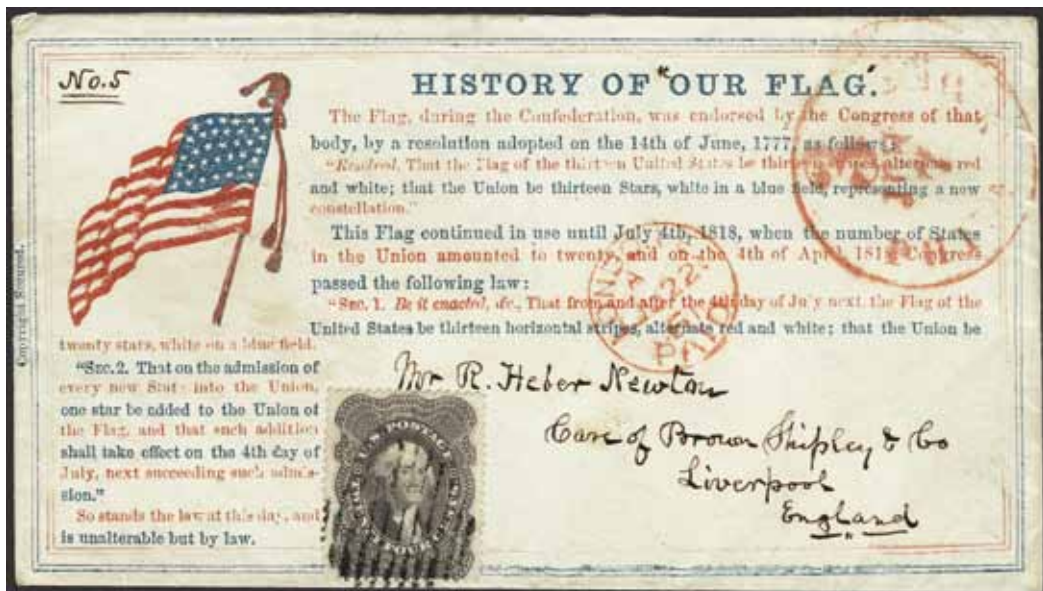 No. 5
HISTORY OF "OUR FLAG".
The Flag, during the Confederation, was endorsed by the Congress of that
body, by a resolution adopted on the 14th of June, 1777, as follows:
"Resolved, That the Flag of the thirteen United States be thirteen stripes, alternate red
and white; that the Union be thirteen Stars, white in a blue field, representing a new
constellation."
This Flag continued in use until July 4th, 1818, when the number of States
in the Union amounted to twenty, and on the 4th of April, 1818, Congress
passed the following law:
"Sec. 1. Be it enacted, &c., That from and after the 4th day of July next, the Flag of the
United States be thirteen horizontal stripes, alternate red and white; that the Union be
twenty stars, white on a blue field.
"Sec.2. That on the admission of
every new State into the Union,
one star be added to the Union of
the Flag, and that such addition
shall take effect on the 4th day of
July, next succeeding such admis-
sion."
So stands the law at this day, and
is unalterable but by law.
Copyright Secured.
Mr R. Heber Newton
Care of Brown Shipley & Co
Liverpool
England
U.S. POSTAGE
22
PAID